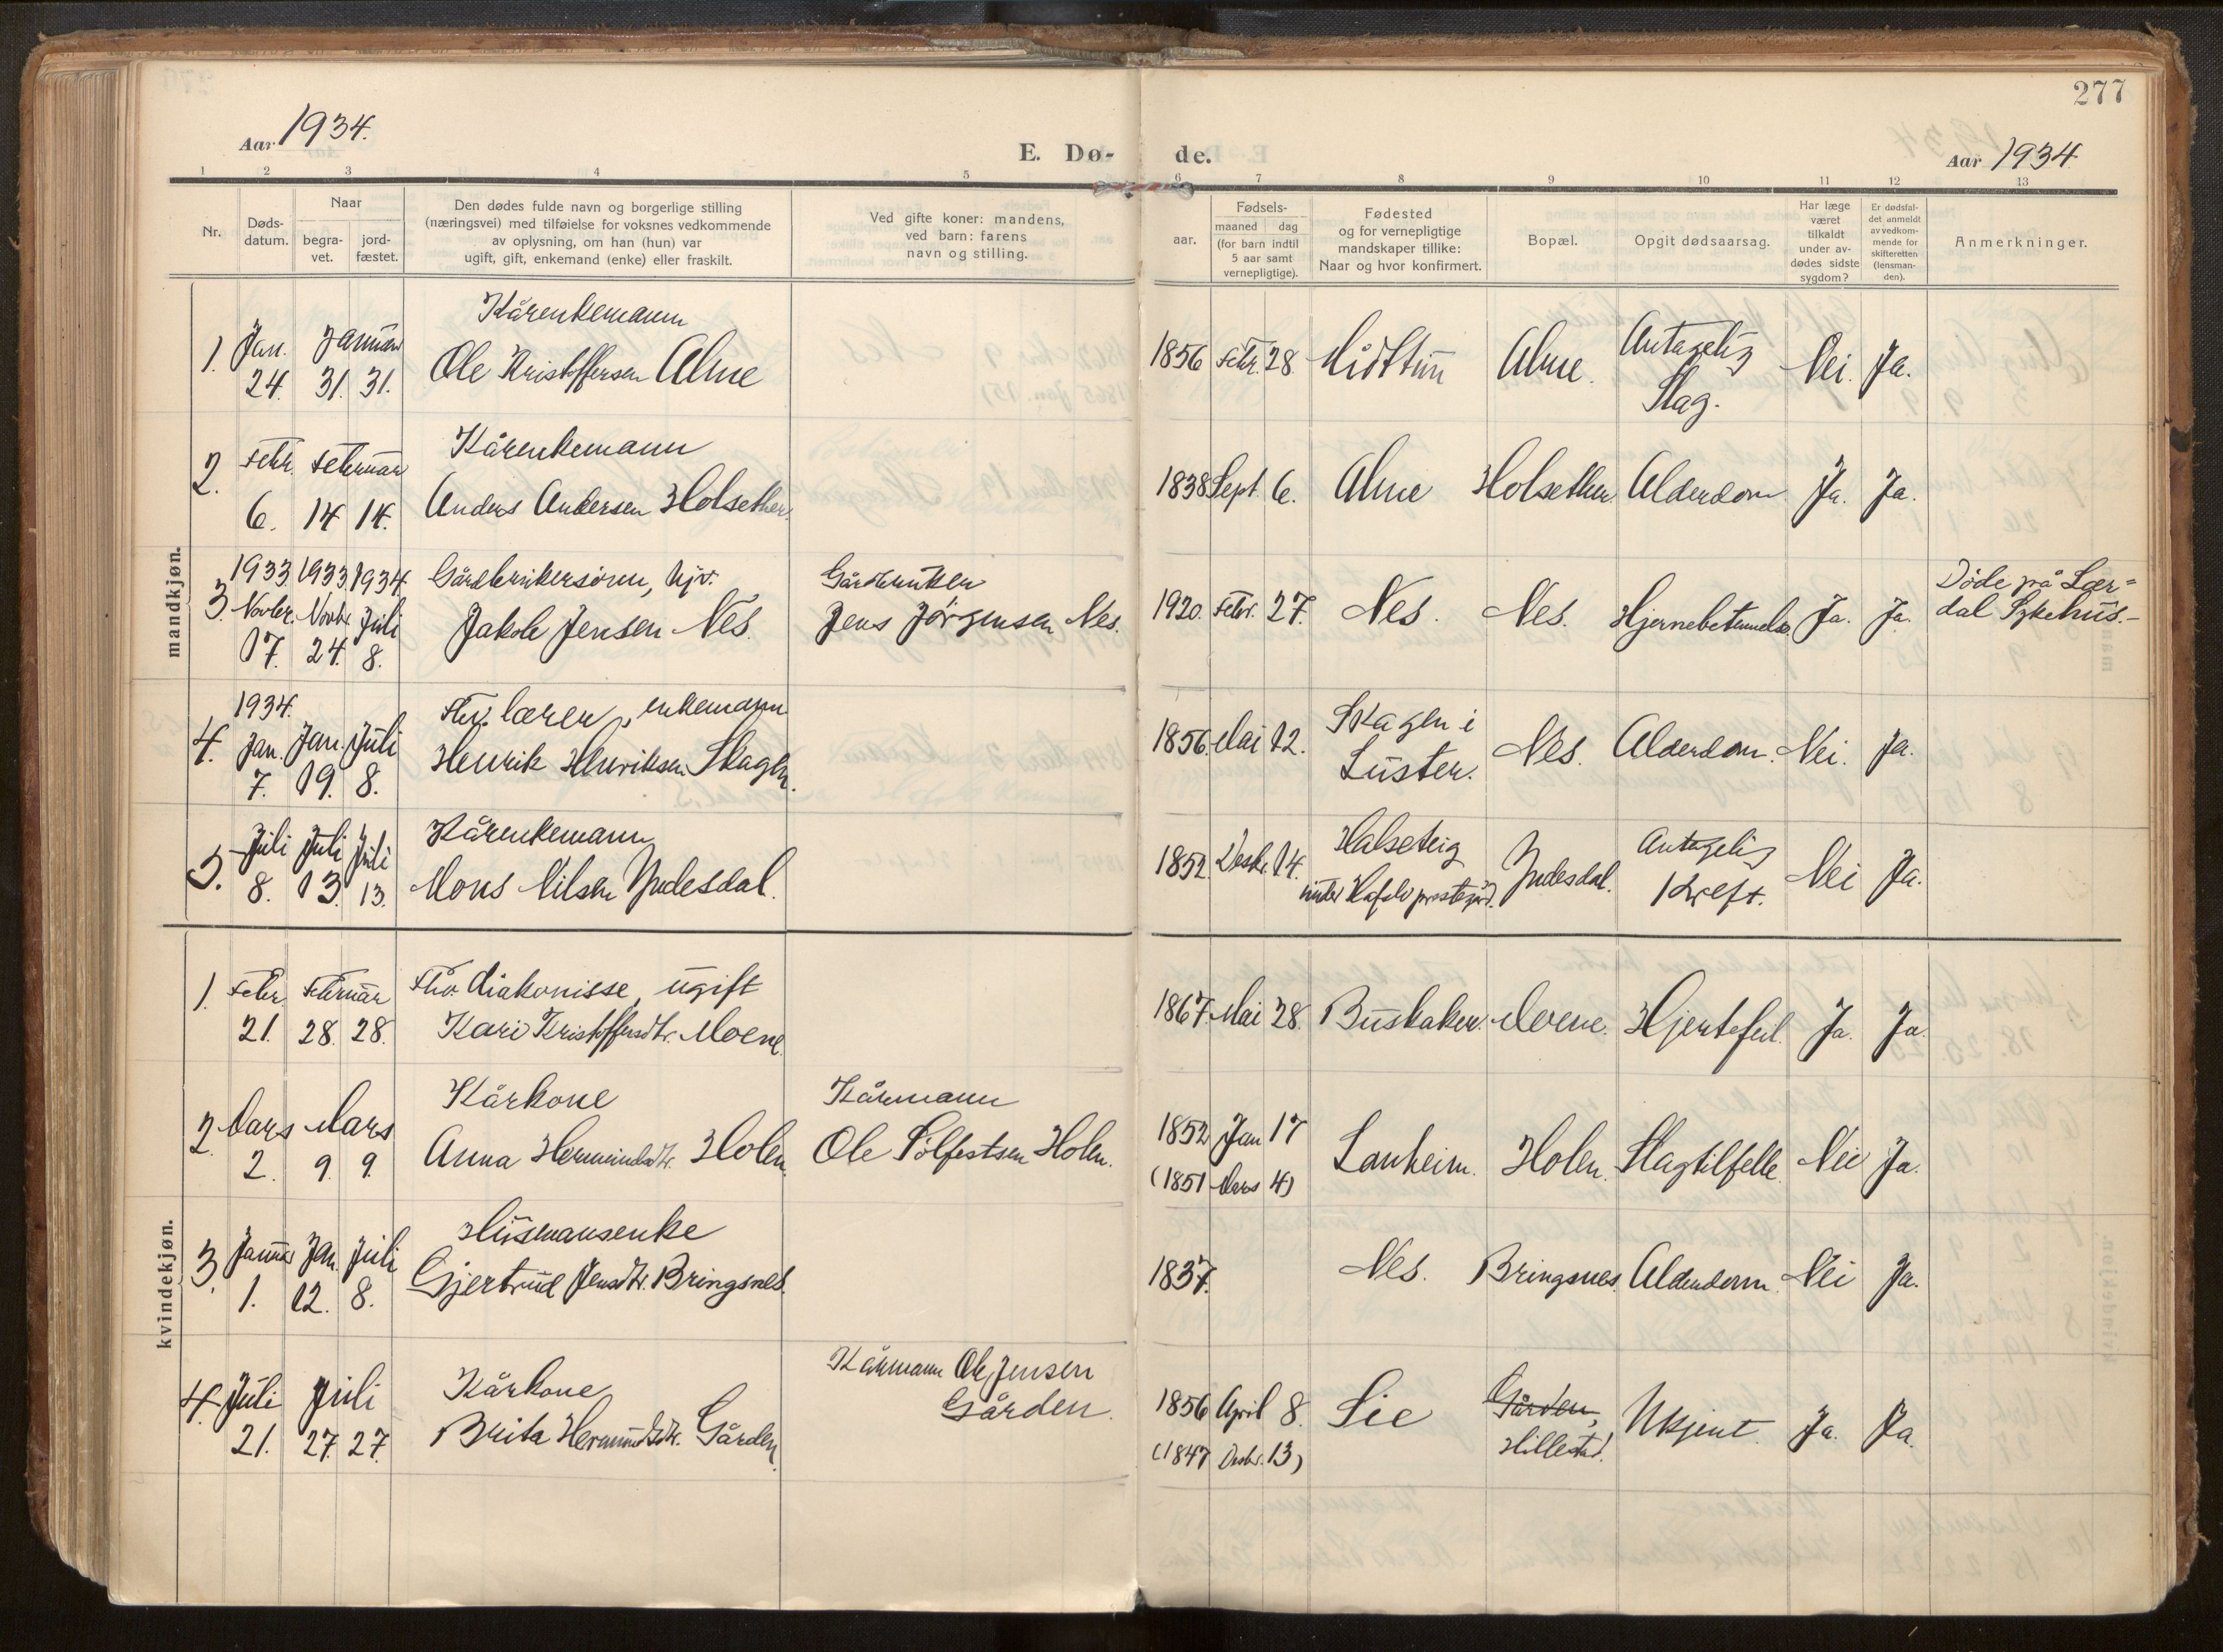 277
Aar 1934.
E. Dø- de.
Aar 1934.
1 2 3 4 5 6 7 8 9 10 11 12 13
Nr.
Døds-
datum.
Naar
begra-
vet.
jord-
fæstet.
Den dødes fulde navn og borgerlige stilling
(næringsvei) med tilføielse for voksnes vedkommende
av oplysning, om han (hun) var
ugift, gift, enkemand (enke) eller fraskilt.
Ved gifte koner: mandens,
ved barn: farens
navn og stilling.
Fødsels-
aar.
maaned dag
(for barn indtil
5 aar samt
vernepligtige).
Fødested
og for vernepligtige
mandskaper tillike:
Naar og hvor konfirmert.
Bopæl.
Opgit dødsaarsag.
Har læge
været
tilkaldt
under av-
dødes sidste
sygdom?
Er dødsfal-
det anmeldt
av vedkom-
mende for
skifteretten
(lensman-
den).
Anmerkninger.
mandkjøn.
Kårenkemann
1. Jan. Januar Ole Kristoffersen Alme 1856 Febr. 28. Midttun Alme. Antagelig Nei. Ja.
24. 31. 31. Slag.
Kårenkemann
2. Febr. Februar Anders Andersen Holsether. 1838 Sept. 6. Alme Holsether. Alderdom Ja. Ja.
6. 14. 14.
1933. 1933. 1934. Gårdbrukersønn, Gårdbruker Døde på Lær-
3. Novbr. Novbr. Juli Jakob Jensen Nes. Jens Jørgensen Nes. 1920. Febr. 27. Nes. Nes. Hjernebetennelse. Ja. Ja. dal Sykehus.-
17. 24. 8.
1934. Fhv. lærer, enkemann Skagen i
4. Jan. Jan. Juli Henrik Henriksen Skagen. 1856. Mai 12. Luster. Nes. Alderdom. Nei. Ja.
7. 19. 8.
Kårenkemann Halseteig Antagelig
5. Juli Juli Juli Mons Nilsen Yndesdal. 1852. Desbr. 14. under Hafslo prestegjd. Yndesdal. Kreft. Nei Ja.
8. 13. 13.
kvindekjøn.
1. Febr. Februar Fhv. diakonisse, ugift
21. 28. 28. Kari Kristoffersdtr. Moene. 1867. Mai 28. Buskaker. Moene. Hjertefeil. Ja. Ja.
Kårkone Kårmann
2. Mars Mars Anna Hermundsdtr. Holen. Ole Solfestsen Holen. 1852 Jan 17 Lanheim. Holen. Slagtilfelle. Nei Ja.
2. 9. 9. (1851 Mars 4)
Husmansenke
3. Januar Jan. Juli Gjertrud Jensdtr. Bringsnes. 1837. Nes. Bringsnes. Alderdom. Nei Ja.
1. 12. 8.
Kårkone Kårmann Ole Jensen
4. Juli Juli Brita Hermundsdtr. Gården. Gården. 1856 April 8. Lie Gården, Ukjent. Ja. Ja.
21. 27. 27. (1847 Desbr. 13) Hillestad.